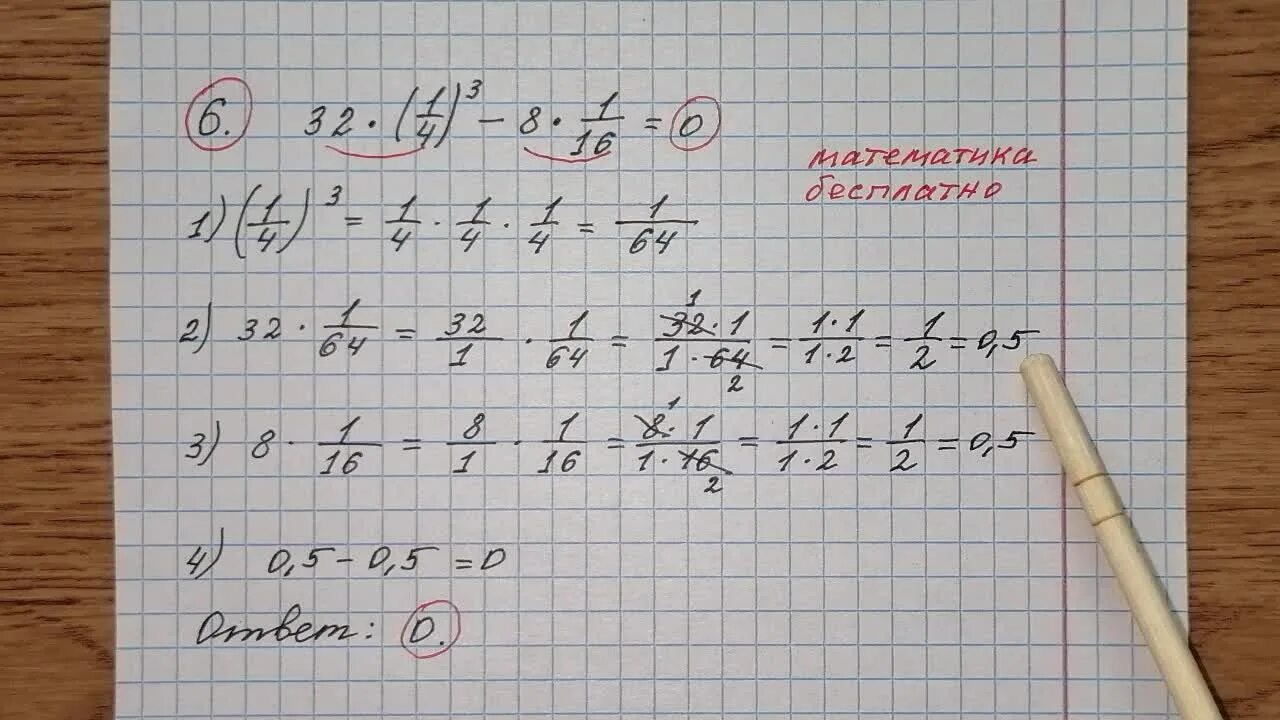 6. 32 · (1/4)³ − 8 · 1/16 = 0
математика
бесплатно
1) (1/4)³ = 1/4 · 1/4 · 1/4 = 1/64
2) 32 · 1/64 = 32/1 · 1/64 = 32 · 1 / 1 · 64 = 1 · 1 / 1 · 2 = 1/2 = 0,5
3) 8 · 1/16 = 8/1 · 1/16 = 8 · 1 / 1 · 16 = 1 · 1 / 1 · 2 = 1/2 = 0,5
4) 0,5 − 0,5 = 0
Ответ: 0.